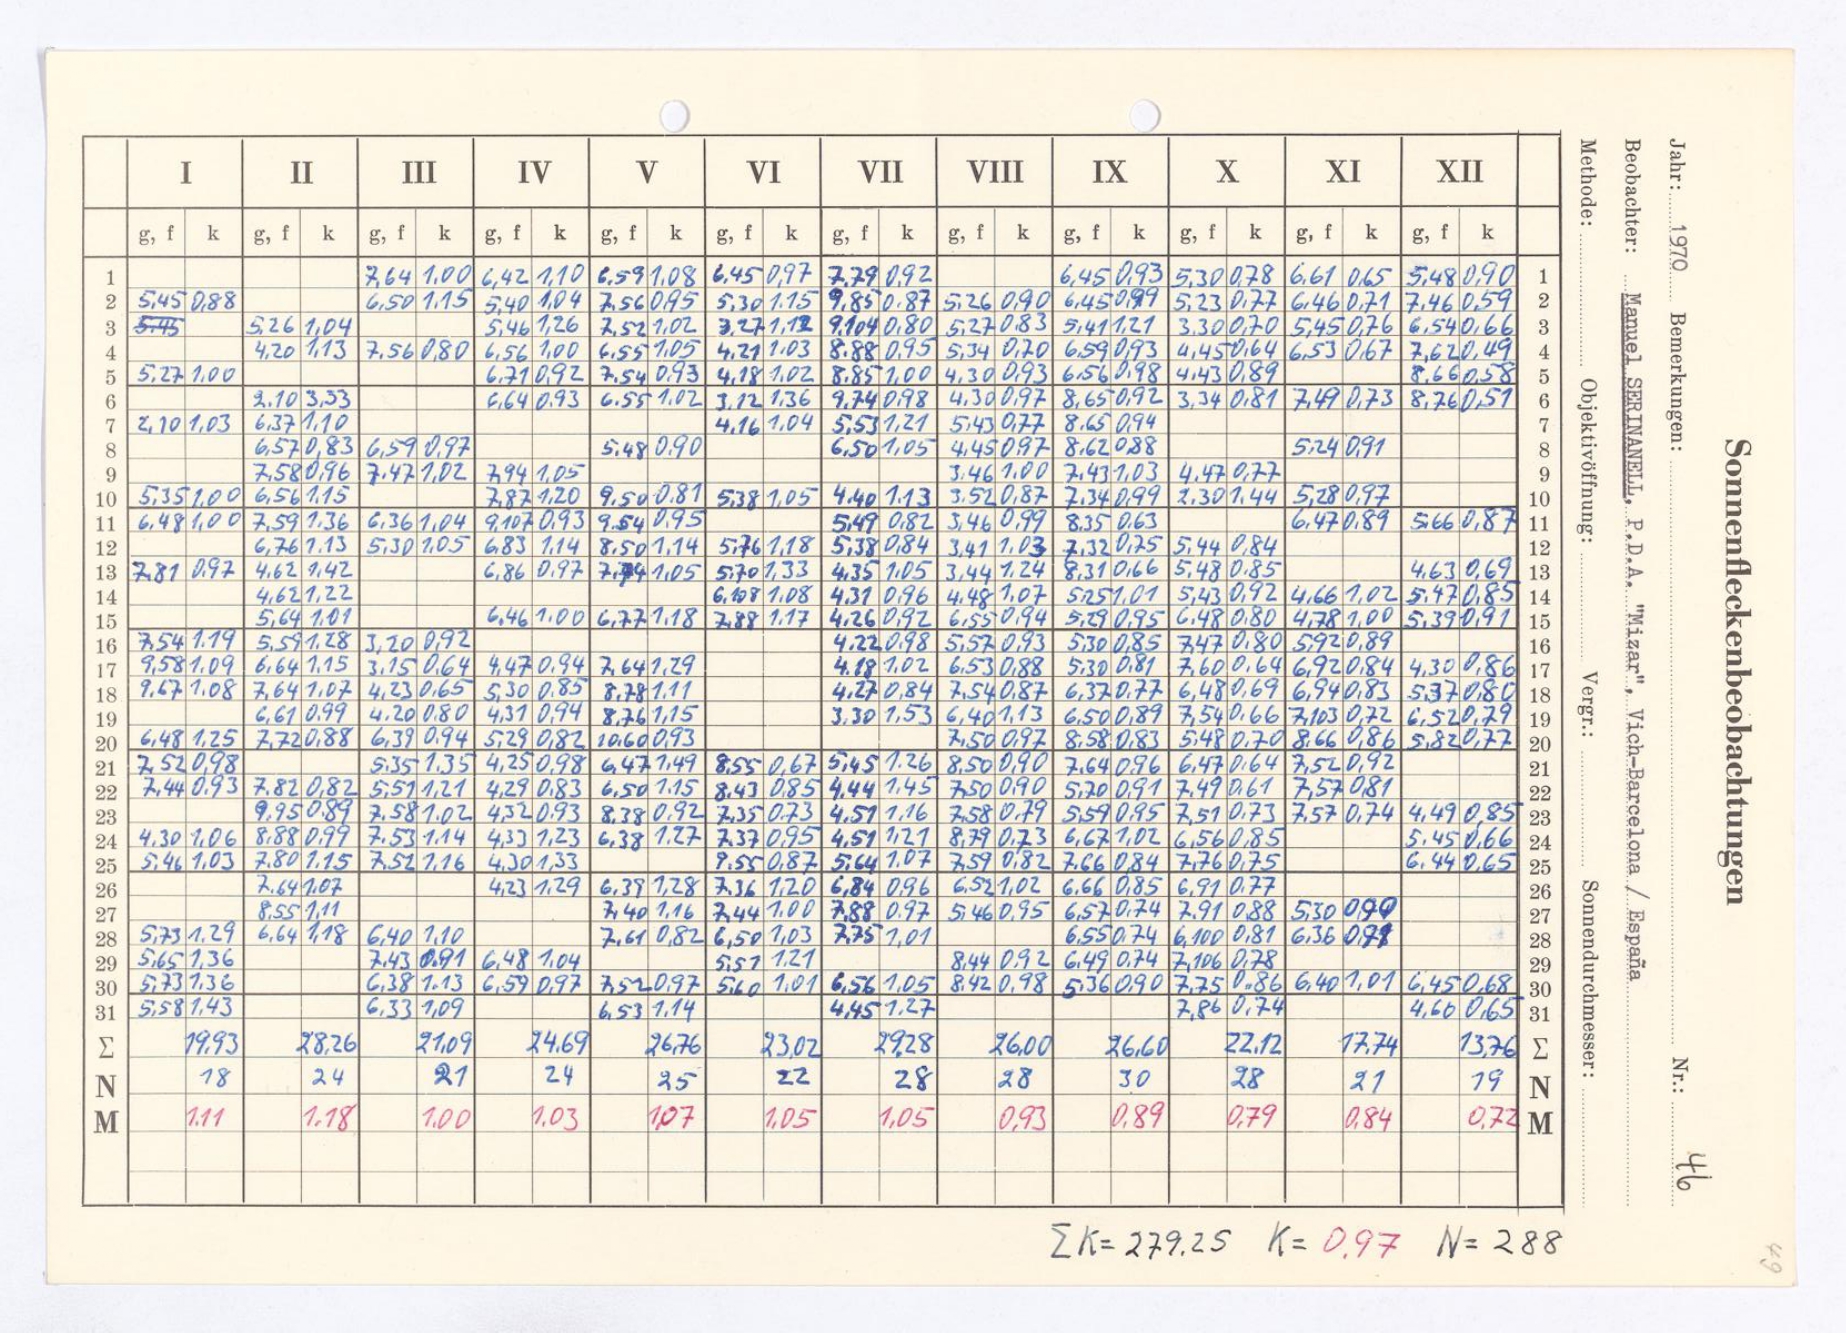 Sonnenfleckenbeobachtungen
Jahr: 1970 Bemerkungen: Nr.: 46
Beobachter: Manuel SERINANELL, P.D.A. "Mizar", Vich-Barcelona / España
Methode: Objektivöffnung: Vergr.: Sonnendurchmesser:
I II III IV V VI VII VIII IX X XI XII
g, f k g, f k g, f k g, f k g, f k g, f k g, f k g, f k g, f k g, f k g, f k g, f k
1 7,64 1,00 6,42 1,10 6,59 1,08 6,45 0,97 7,79 0,92 6,45 0,93 5,30 0,78 6,61 0,65 5,48 0,90 1
2 5,45 0,88 6,50 1,15 5,40 1,04 7,56 0,95 5,30 1,15 9,85 0,87 5,26 0,90 6,45 0,99 5,23 0,77 6,46 0,71 7,46 0,59 2
3 5,45 5,26 1,04 5,46 1,26 7,52 1,02 3,27 1,12 9,104 0,80 5,27 0,83 5,41 1,21 3,30 0,70 5,45 0,76 6,54 0,66 3
4 4,20 1,13 7,56 0,80 6,56 1,00 6,55 1,05 4,21 1,03 8,88 0,95 5,34 0,70 6,59 0,93 4,45 0,64 6,53 0,67 7,62 0,49 4
5 5,27 1,00 6,71 0,92 7,54 0,93 4,18 1,02 8,85 1,00 4,30 0,93 6,56 0,98 4,43 0,89 8,66 0,58 5
6 2,10 3,33 6,64 0,93 6,55 1,02 3,12 1,36 9,74 0,98 4,30 0,97 8,65 0,92 3,34 0,81 7,49 0,73 8,76 0,51 6
7 2,10 1,03 6,37 1,10 4,16 1,04 5,53 1,21 5,43 0,77 8,65 0,94 7
8 6,57 0,83 6,59 0,97 5,48 0,90 6,50 1,05 4,45 0,97 8,62 0,88 5,24 0,91 8
9 7,58 0,96 7,47 1,02 7,94 1,05 3,46 1,00 7,43 1,03 4,47 0,77 9
10 5,35 1,00 6,56 1,15 7,87 1,20 9,50 0,81 5,38 1,05 4,40 1,13 3,52 0,87 7,34 0,99 2,30 1,44 5,28 0,97 10
11 6,48 1,00 7,59 1,36 6,36 1,04 9,107 0,93 9,54 0,95 5,49 0,82 3,46 0,99 8,35 0,63 6,47 0,89 5,66 0,87 11
12 6,76 1,13 5,30 1,05 6,83 1,14 8,50 1,14 5,76 1,18 5,38 0,84 3,41 1,03 7,32 0,75 5,44 0,84 12
13 7,81 0,97 4,62 1,42 6,86 0,97 7,74 1,05 5,70 1,33 4,35 1,05 3,44 1,24 8,31 0,66 5,48 0,85 4,63 0,69 13
14 4,62 1,22 6,108 1,08 4,31 0,96 4,48 1,07 5,25 1,01 5,43 0,92 4,66 1,02 5,47 0,85 14
15 5,64 1,01 6,46 1,00 6,77 1,18 7,88 1,17 4,26 0,92 6,55 0,94 5,29 0,95 6,48 0,80 4,78 1,00 5,39 0,91 15
16 7,54 1,19 5,59 1,28 3,20 0,92 4,22 0,98 5,57 0,93 5,30 0,85 7,47 0,80 5,92 0,89 16
17 9,58 1,09 6,64 1,15 3,15 0,64 4,47 0,94 7,64 1,29 4,18 1,02 6,53 0,88 5,30 0,81 7,60 0,64 6,92 0,84 4,30 0,86 17
18 9,67 1,08 7,64 1,07 4,23 0,65 5,30 0,85 8,78 1,11 4,27 0,84 7,54 0,87 6,37 0,77 6,48 0,69 6,94 0,83 5,37 0,80 18
19 6,61 0,99 4,20 0,80 4,31 0,94 8,76 1,15 3,30 1,53 6,40 1,13 6,50 0,89 7,54 0,66 7,103 0,72 6,52 0,79 19
20 6,48 1,25 7,72 0,88 6,39 0,94 5,29 0,82 10,60 0,93 7,50 0,97 8,58 0,83 5,48 0,70 8,66 0,86 5,82 0,77 20
21 7,52 0,98 5,35 1,35 4,25 0,98 6,47 1,49 8,55 0,67 5,45 1,26 8,50 0,90 7,64 0,96 6,47 0,64 7,52 0,92 21
22 7,44 0,93 7,82 0,82 5,51 1,21 4,29 0,83 6,50 1,15 8,43 0,85 4,44 1,45 7,50 0,90 5,70 0,91 7,49 0,61 7,57 0,81 22
23 9,95 0,89 7,58 1,02 4,32 0,93 8,38 0,92 7,35 0,73 4,51 1,16 7,58 0,79 5,59 0,95 7,51 0,73 7,57 0,74 4,49 0,85 23
24 4,30 1,06 8,88 0,99 7,53 1,14 4,33 1,23 6,38 1,27 7,37 0,95 4,51 1,21 8,79 0,73 6,67 1,02 6,56 0,85 5,45 0,66 24
25 5,46 1,03 7,80 1,15 7,52 1,16 4,30 1,33 9,55 0,87 5,64 1,07 7,59 0,82 7,66 0,84 7,76 0,75 6,44 0,65 25
26 7,64 1,07 4,23 1,29 6,39 1,28 7,36 1,20 6,84 0,96 6,52 1,02 6,66 0,85 6,91 0,77 26
27 8,55 1,11 7,40 1,16 7,44 1,00 7,88 0,97 5,46 0,95 6,57 0,74 7,91 0,88 5,30 0,90 27
28 5,73 1,29 6,64 1,18 6,40 1,10 7,61 0,82 6,50 1,03 7,75 1,01 6,55 0,74 6,100 0,81 6,36 0,98 28
29 5,65 1,36 7,43 0,91 6,48 1,04 5,57 1,21 8,44 0,92 6,49 0,74 7,106 0,78 29
30 5,73 1,36 6,38 1,13 6,59 0,97 7,52 0,97 5,60 1,01 6,56 1,05 8,42 0,98 5,36 0,90 7,75 0,86 6,40 1,01 6,45 0,68 30
31 5,58 1,43 6,33 1,09 6,53 1,14 4,45 1,27 7,86 0,74 4,60 0,65 31
Σ 19,93 28,26 21,09 24,69 26,76 23,02 29,28 26,00 26,60 22,12 17,74 13,76 Σ
N 18 24 21 24 25 22 28 28 30 28 21 19 N
M 1,11 1,18 1,00 1,03 1,07 1,05 1,05 0,93 0,89 0,79 0,84 0,72 M
ΣK= 279,25 K= 0,97 N= 288
49